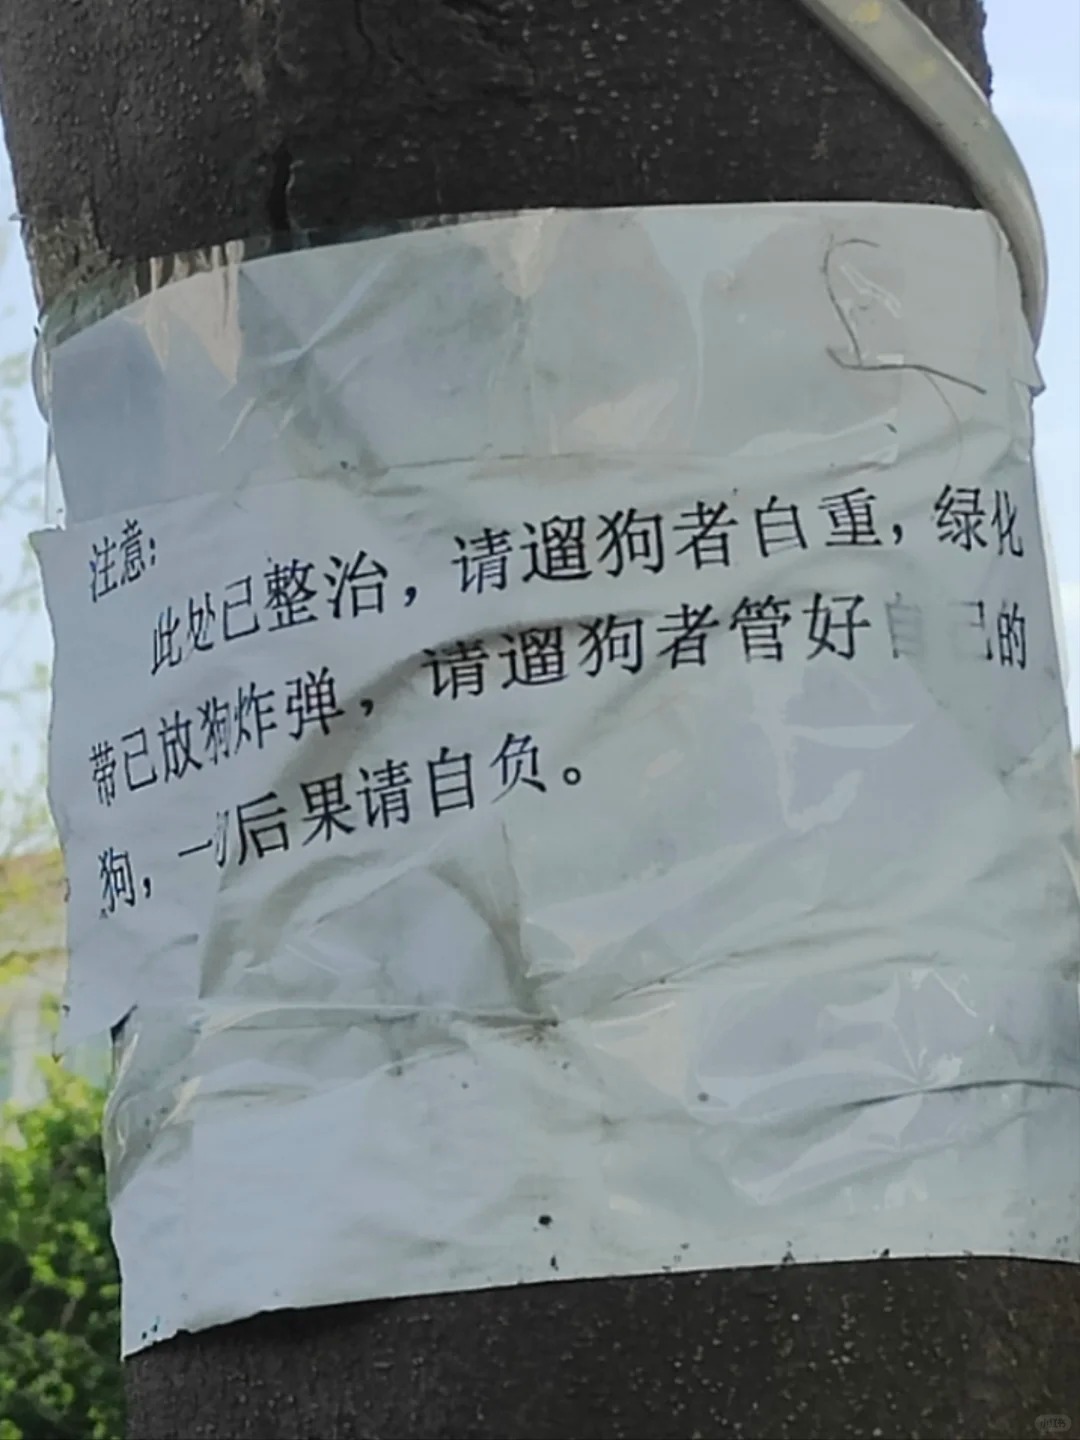 注意：
此处已整治，请遛狗者自重，绿化
带已放狗炸弹，请遛狗者管好自己的
狗，一切后果请自负。
小红书